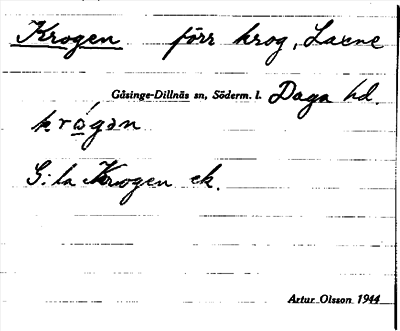 Krogen förr krog, Laxne
Gåsinge-Dillnäs sn, Söderm. l. Daga hd.
krógən
G:la Krogen ek.
Artur Olsson 1944